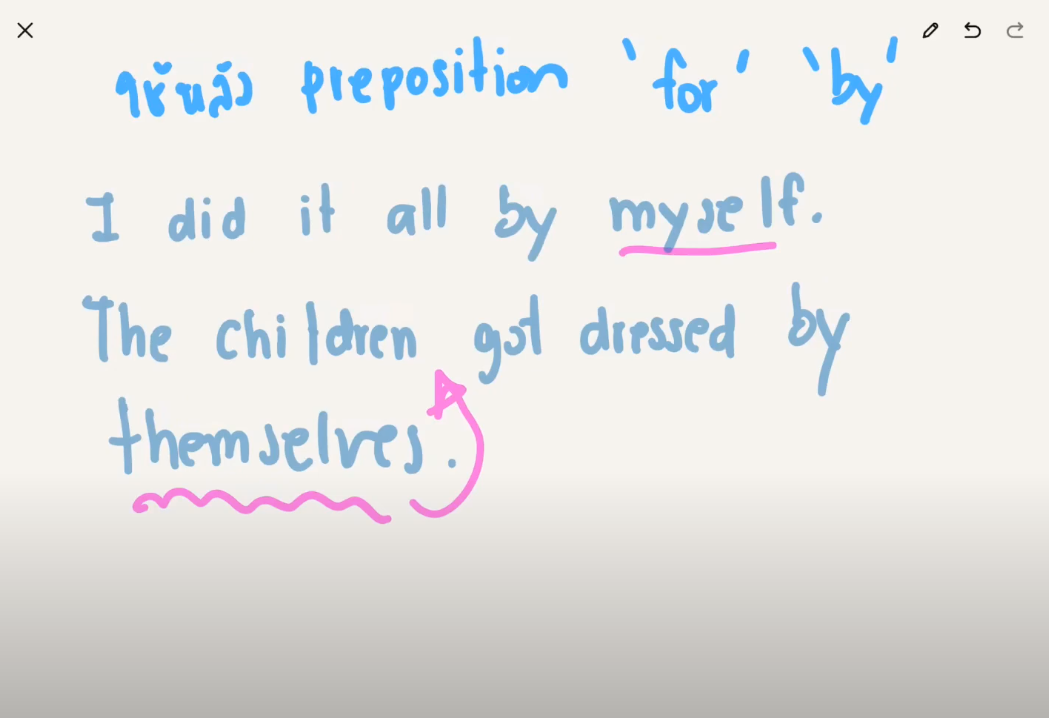 ใช้หลัง preposition 'for' 'by'
I did it all by myself.
The children got dressed by
themselves.